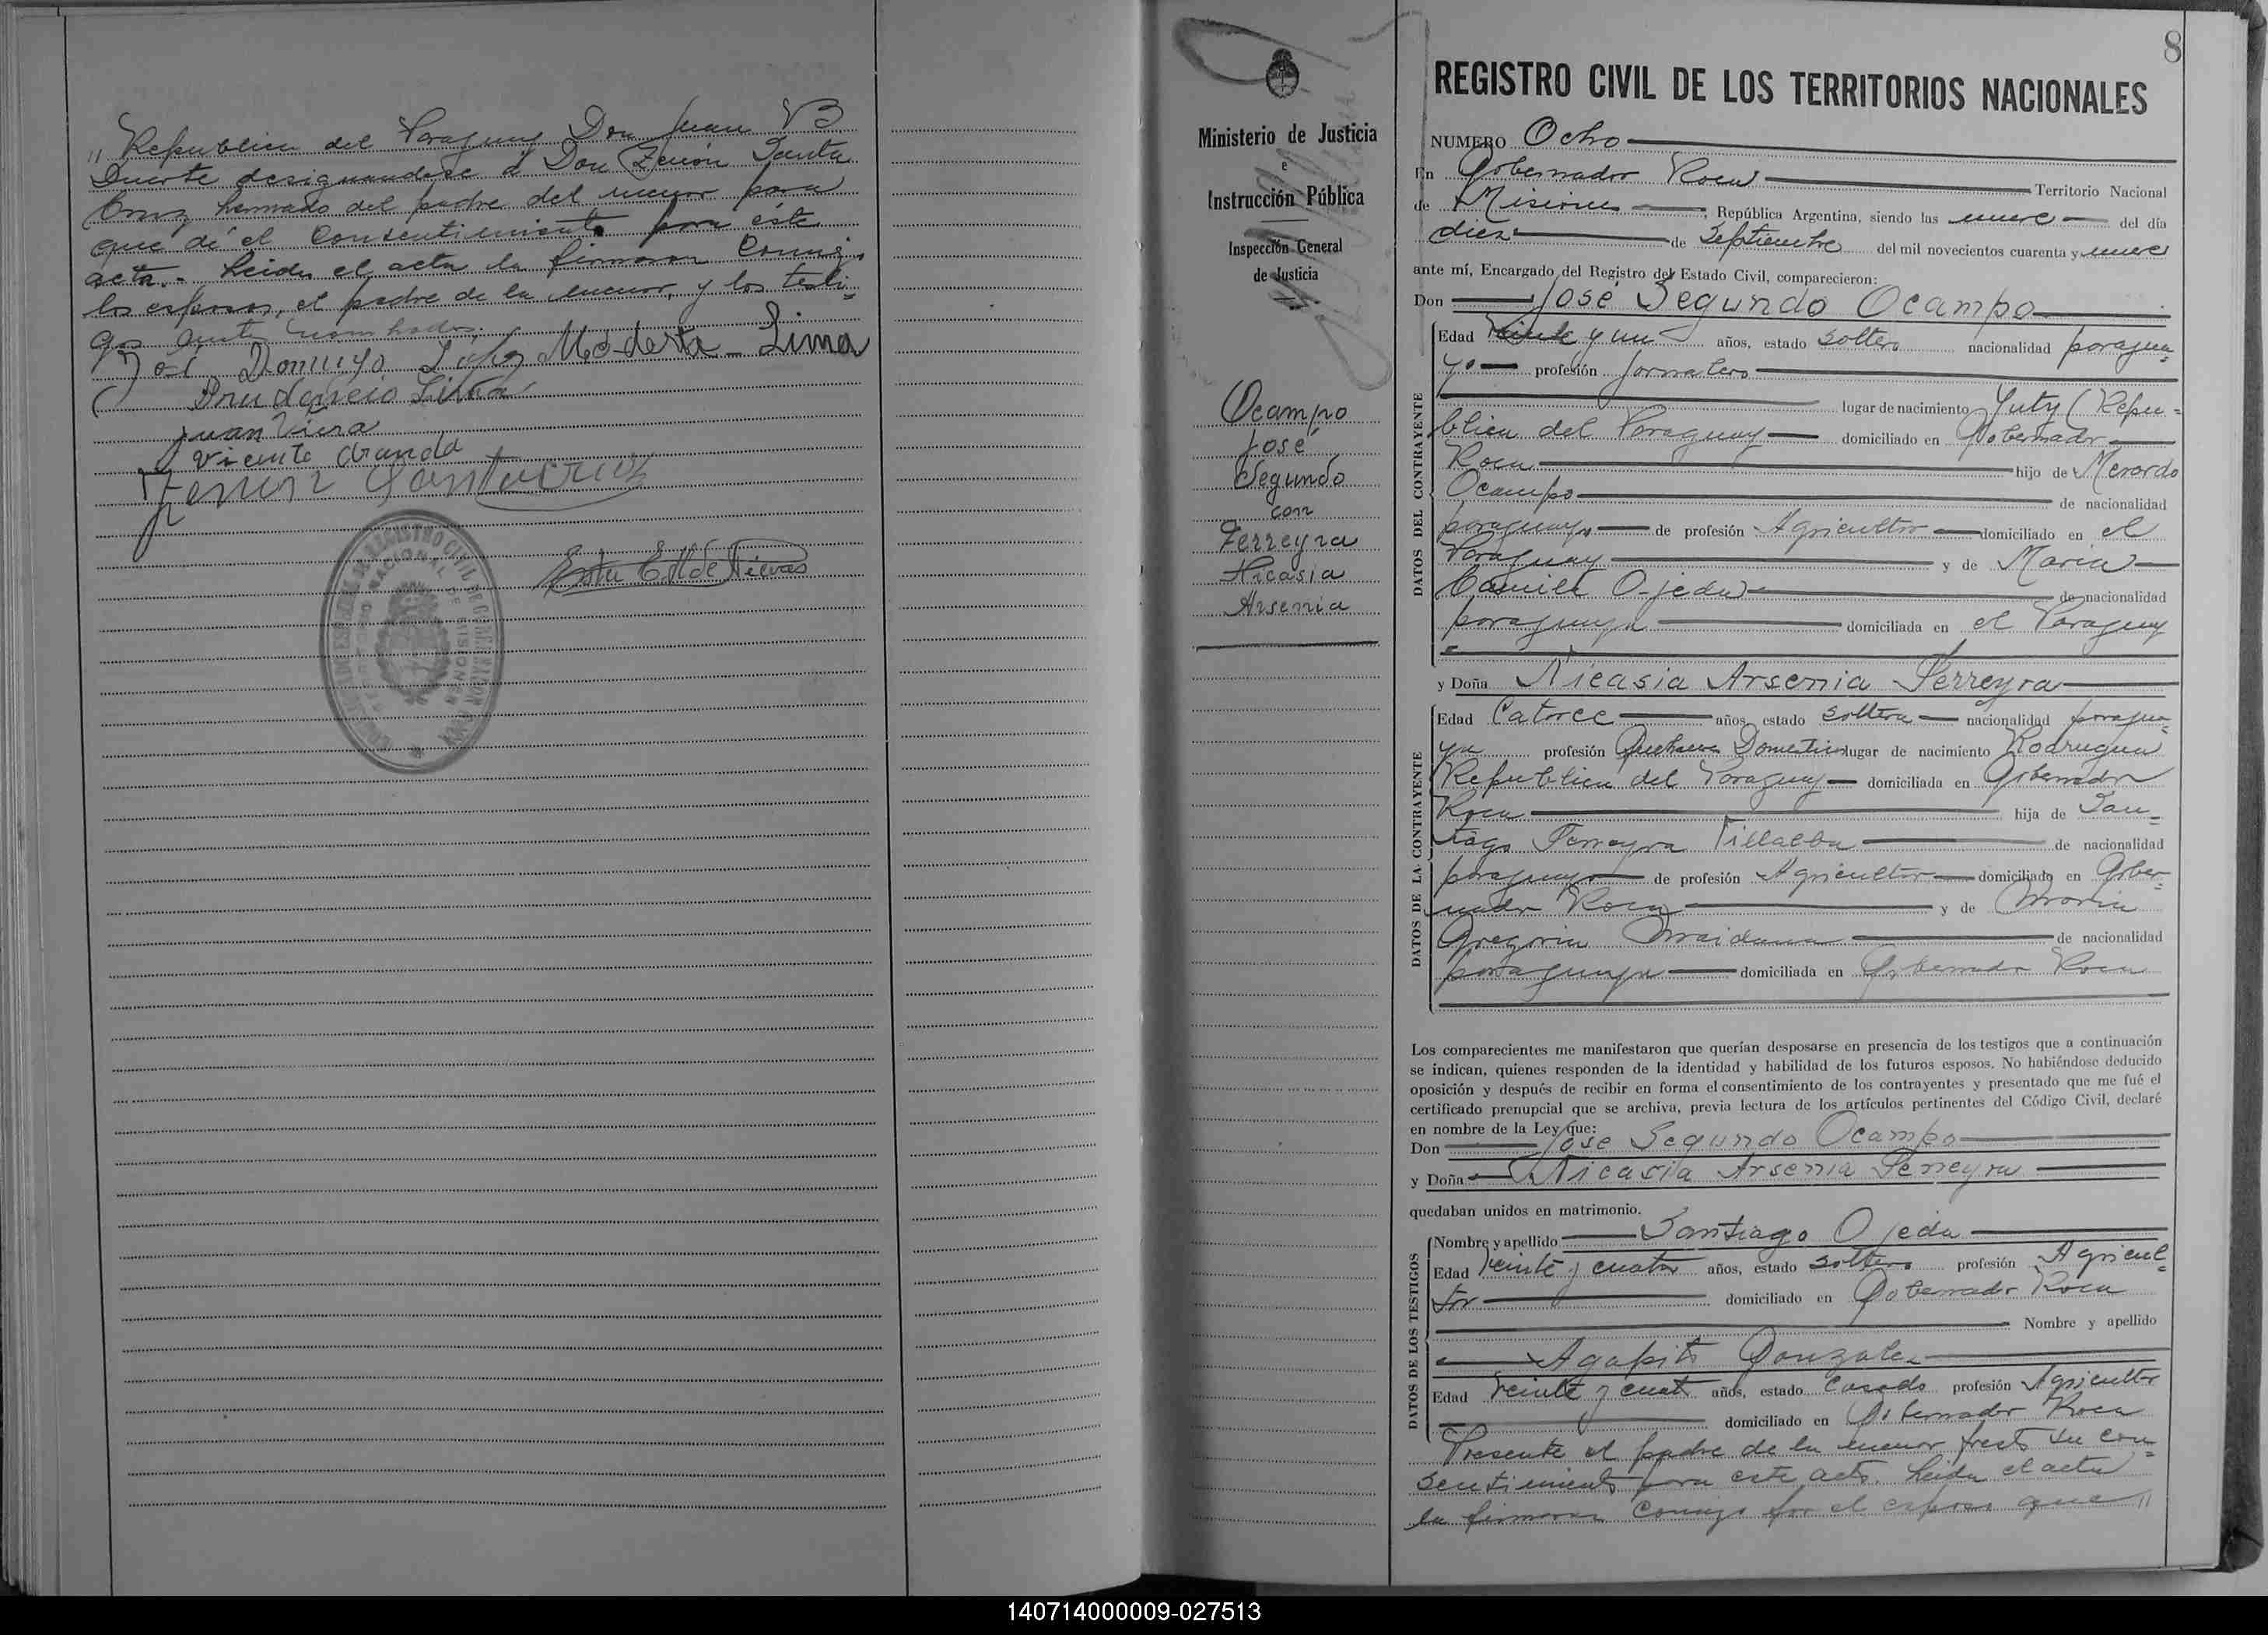 " Republica del Paraguay Don Juan B
Duarte designandose á Don Zenón Santa
Cruz hermado del padre del menor para
que dé el Consentimiento para éste
acto.- Leida el acta la firmaron Conmigo
los esposos, el padre de la menor, y los testi=
gos ante nombrados.
José Domingo López Modesta - Lima
Prudencio Lima
Juan Viera
Vicente Aranda
Zenon Santacruz
REGISTRO CIVIL DE
8
REGISTRO CIVIL DE LOS TERRITORIOS NACIONALES
Ministerio de Justicia
e
Instrucción Pública
Inspección General
de Justicia
Ocampo
José
Segundo
con
Ferreyra
Nicasia
Arsenia
NUMERO Ocho
En Gobernador Roca Territorio Nacional
de Misiones, República Argentina, siendo las nueve del día
diez de Septiembre del mil novecientos cuarenta y nueve
ante mí, Encargado del Registro del Estado Civil, comparecieron:
Don José Segundo Ocampo
DATOS DEL CONTRAYENTE
Edad Veinte y un años, estado soltero nacionalidad paragua
yo profesión Jornalero
lugar de nacimiento Yuty (Repu=
blica del Paraguay domiciliado en Gobernador
Roca hijo de Merardo
Ocampo de nacionalidad
paraguayo de profesión Agricultor domiciliado en el
Paraguay y de Maria
Camila Ojeda de nacionalidad
paraguaya domiciliada en el Paraguay
y Doña Nicasia Arsenia Ferreyra
DATOS DE LA CONTRAYENTE
Edad Catorce años, estado soltera nacionalidad paragua=
ya profesión Quehaceres Domesticos lugar de nacimiento
Republica del Paraguay domiciliada en Gobernador
Roca hija de San=
tiago Ferreyra Villalba de nacionalidad
paraguayo de profesión Agricultor domiciliado en Gober=
nador Roca y de Maria
Gregoria Maidana de nacionalidad
paraguaya domiciliada en Gobernador Roca
Los comparecientes me manifestaron que querían desposarse en presencia de los testigos que a continuación
se indican, quienes responden de la identidad y habilidad de los futuros esposos. No habiéndose deducido
oposición y después de recibir en forma el consentimiento de los contrayentes y presentado que me fué el
certificado prenupcial que se archiva, previa lectura de los artículos pertinentes del Código Civil, declaré
en nombre de la Ley que:
Don José Segundo Ocampo
y Doña Nicasia Arsenia Ferreyra
quedaban unidos en matrimonio.
DATOS DE LOS TESTIGOS
Nombre y apellido Santiago Ojeda
Edad Veinte y cuatro años, estado soltero profesión Agricul=
tor domiciliado en Gobernador Roca
Nombre y apellido
Agapito Gonzalez
Edad Veinte y cuat años, estado Casado profesión Agricultor
domiciliado en Gobernador Roca
Presente el padre de la menor prestó su con=
sentimiento para este acto. Leida el acta
la firmaron Conmigo por el esposo que "
140714000009-027513